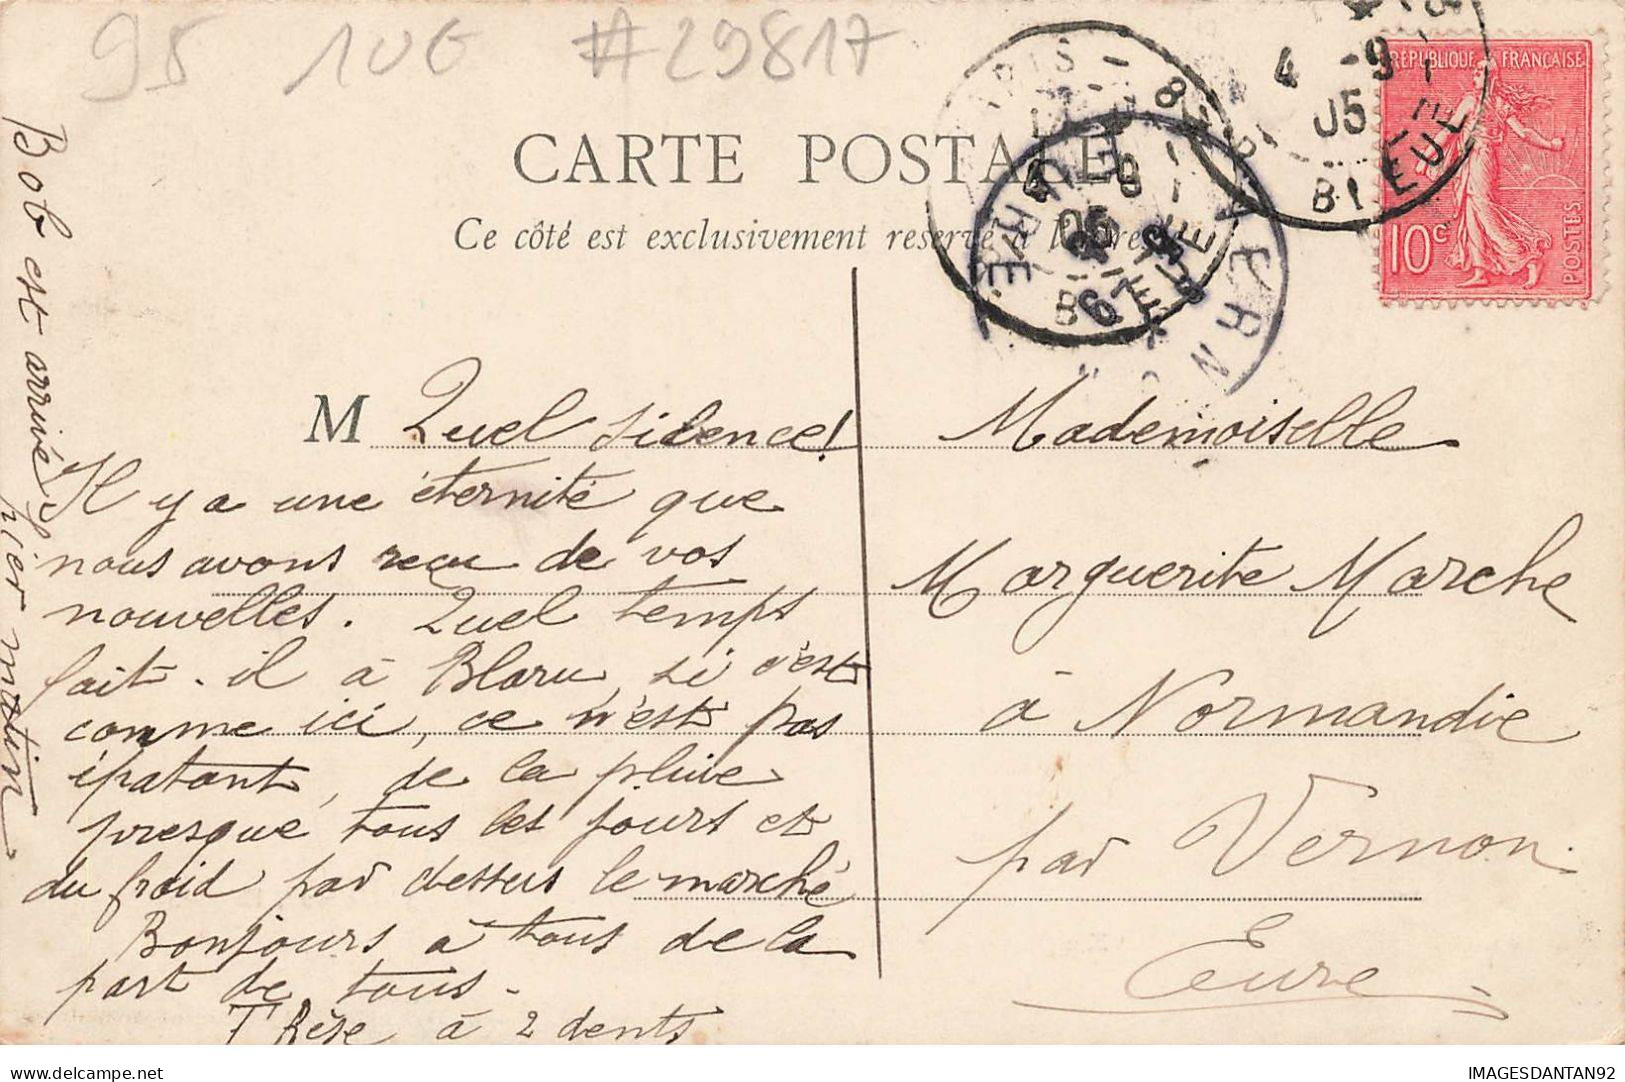 95 10G #29817
RÉPUBLIQUE FRANÇAISE
10c
POSTES
PARIS 8
4 -9
05
BLEUE
CARTE POSTALE
Ce côté est exclusivement réservé à l'adresse
VERN
EURE
M Quel silence!
Il y a une éternité que
nous avons reçu de vos
nouvelles. Quel temps
fait-il à Blaru, si c'est
comme ici, ce n'est pas
épatant, de la pluie
presque tous les jours et
du froid par dessus le marché
Bonjours à tous de la
part de tous.
T'Rèse à 2 dents
Bob est arrivé
hier matin
Mademoiselle
Marguerite Marche
à Normandie
par Vernon.
Eure
IMAGESDANTAN92